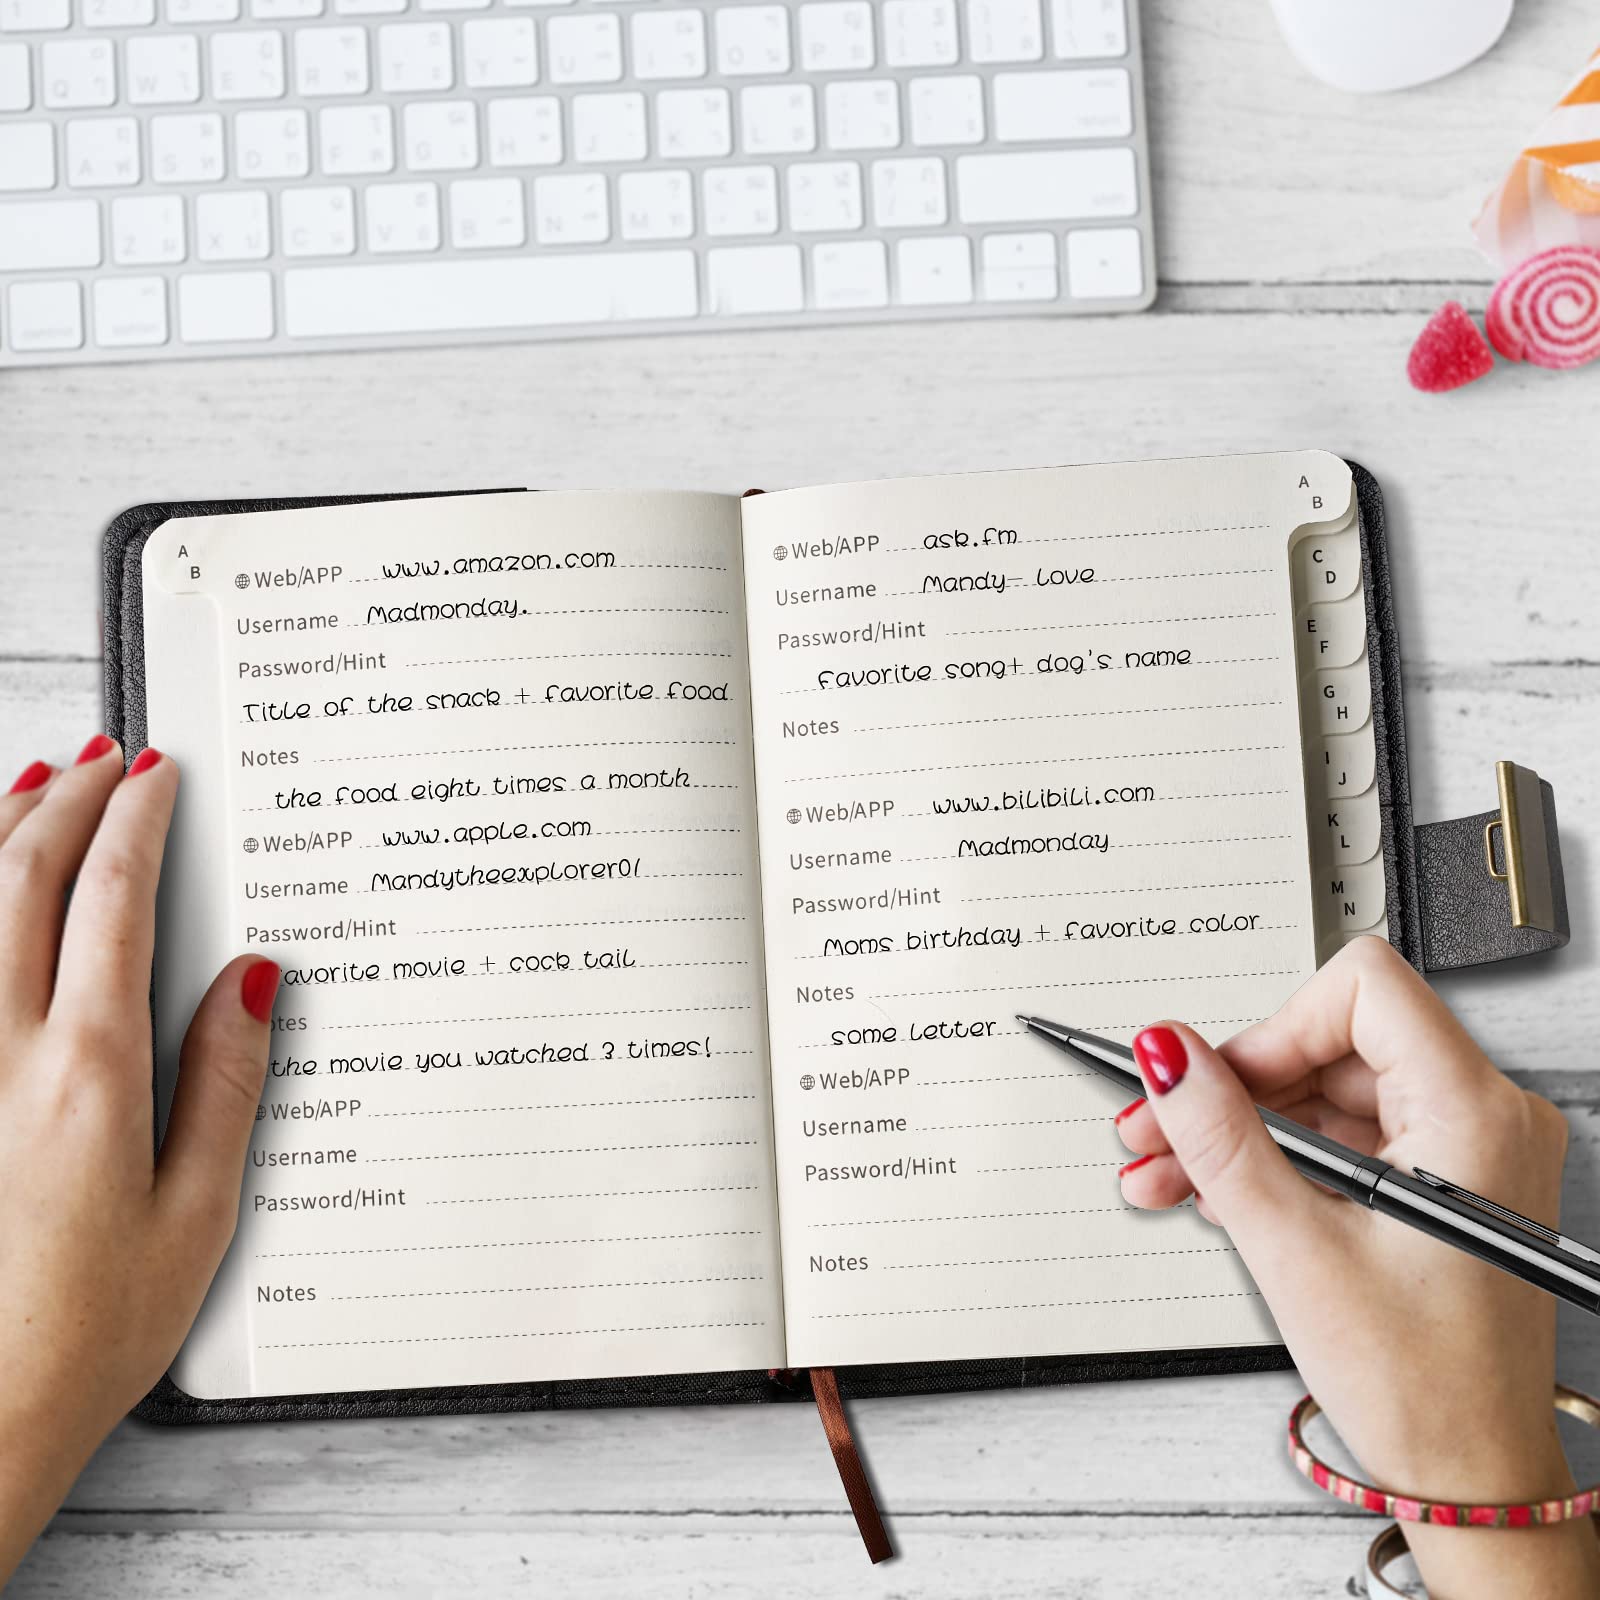 A
B
Web/APP www.amazon.com
Username Madmonday.
Password/Hint
Title of the snack + favorite food
Notes
the food eight times a month
Web/APP www.apple.com
Username Mandytheexplorer01
Password/Hint
favorite movie + cock tail
Notes
the movie you watched 3 times!
Web/APP
Username
Password/Hint
Notes
A
B
Web/APP ask.fm
Username Mandy- Love
Password/Hint
favorite song+ dog's name
Notes
Web/APP www.bilibili.com
Username Madmonday
Password/Hint
Moms birthday + favorite color
Notes
some letter
Web/APP
Username
Password/Hint
Notes
C
D
E
F
G
H
I
J
K
L
M
N
Q W E R T Y U I O P
A S D F G H J K L
Z X C V B N M